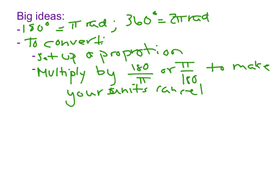 Big ideas:
- 180° = π rad; 360° = 2π rad
- To convert:
- Set up a proportion
- Multiply by 180/π or π/180 to make
your units cancel